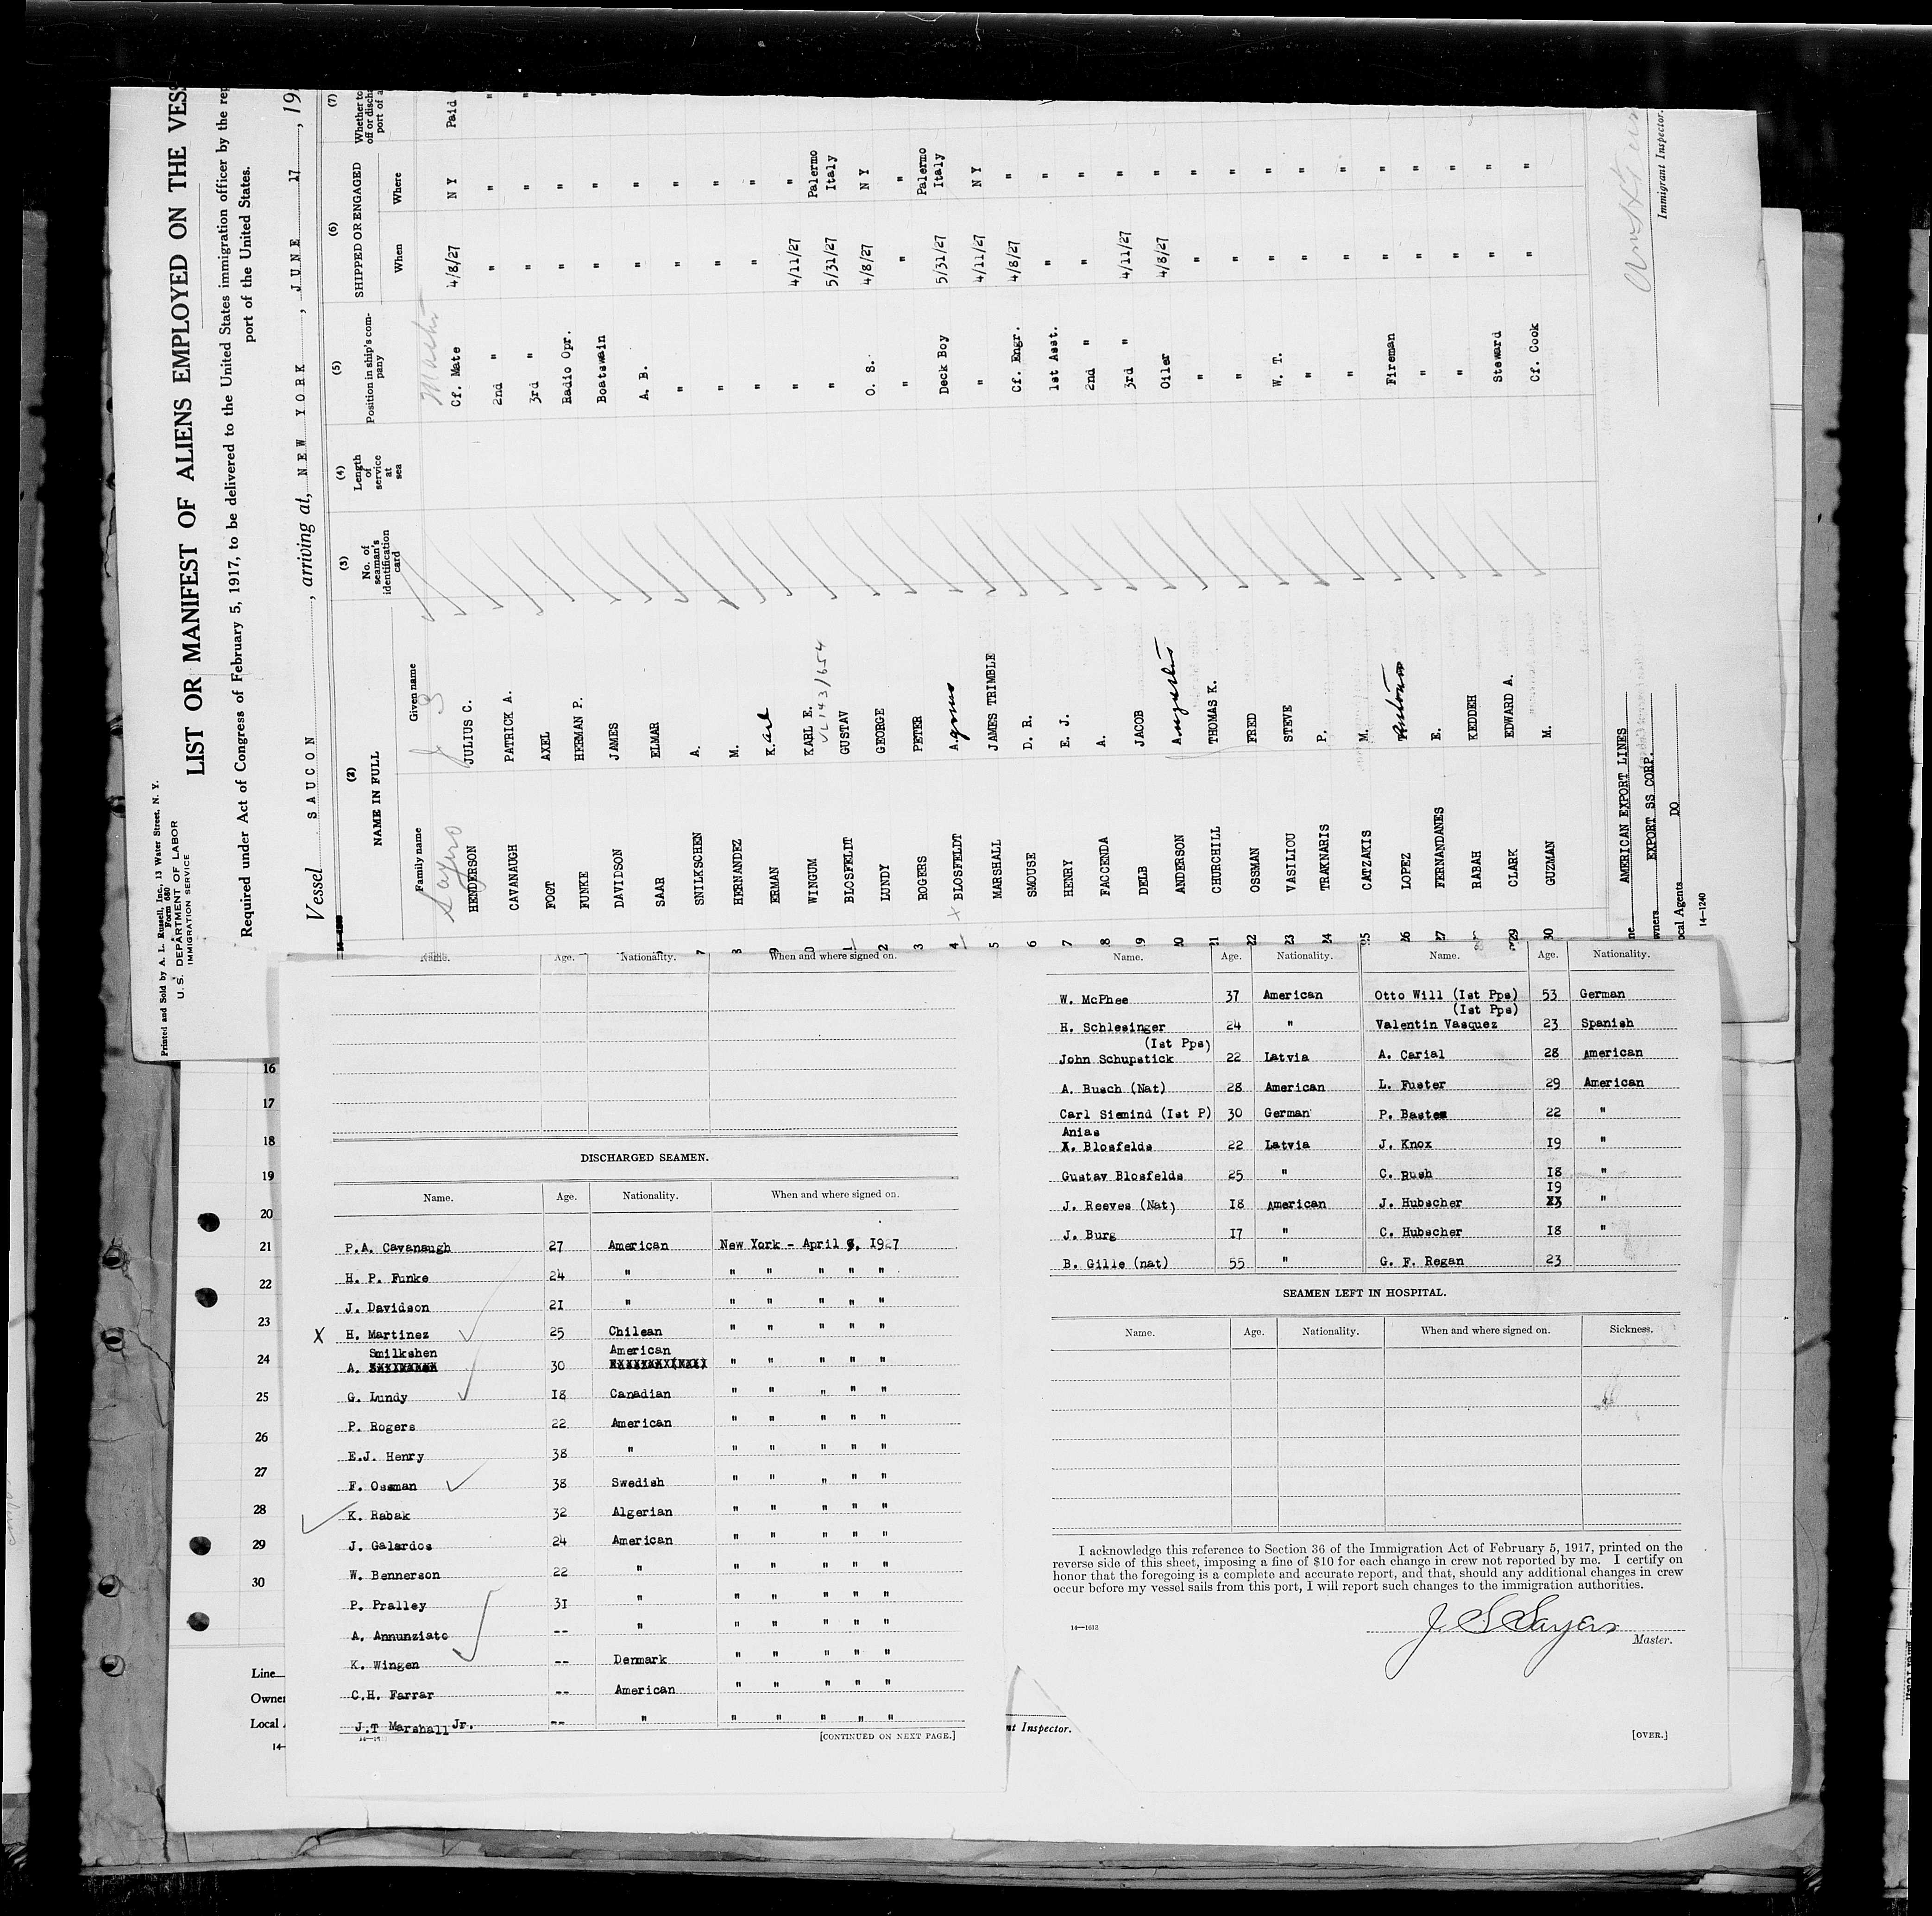 Printed and Sold by A. L. Russell, Inc. 13 Water Street. N. Y.
Form 680
U. S. DEPARTMENT OF LABOR
IMMIGRATION SERVICE
LIST OR MANIFEST OF ALIENS EMPLOYED ON THE VESS
Required under Act of Congress of February 5, 1917, to be delivered to the United States immigration officer by the rep
port of the United States.
Vessel SAUCON, arriving at, NEW YORK, JUNE 17, 19
(2) (3) (4) (5) (6) (7)
NAME IN FULL No. of seaman's identification card Length of service at sea Position in ship's company SHIPPED OR ENGAGED Whether to
off or discha
port of a
Family name Given name When Where
Sayers J S Master
HENDERSON JULIUS C. Cf. Mate 4/8/27 N Y Paid
CAVANAUGH PATRICK A. 2nd " " " "
FOGT AXEL 3rd " " " "
FUNKE HERMAN P. Radio Opr. " " "
DAVIDSON JAMES Boatswain " " "
SAAR ELMAR A. B. " "
7 SNILKSCHEN A. " " "
8 HERNANDEZ M. " " "
9 ERMAN K.arl " " "
10 WINGUM KARL E. " 4/11/27 "
1 BLOSFELDT GUSTAV " 5/31/27 Palermo Italy
2 LUNDY GEORGE O. S. 4/8/27 N Y
3 ROGERS PETER " " "
4 X BLOSFELDT A. Deck Boy 5/31/27 Palermo Italy
5 MARSHALL JAMES TRIMBLE " 4/11/27 N Y
6 SMOUSE D. R. Cf. Engr. 4/8/27 "
7 HENRY E. J. 1st Asst. " "
8 FACCENDA A. 2nd " " "
19 DELB JACOB 3rd " 4/11/27 "
20 ANDERSON A.ugustus Oiler 4/8/27 "
21 CHURCHILL THOMAS K. " " "
22 OSSMAN FRED " " "
23 VASILIOU STEVE W. T. " "
24 TRAKNARIS P. " " "
25 CATZAKIS M. " " "
26 LOPEZ Antonio Fireman " "
27 FERNANDANES E. " " "
28 RABAH KEDDEH " " "
29 CLARK EDWARD A. Steward " "
30 GUZMAN M. Cf. Cook " "
ne AMERICAN EXPORT LINES
wners EXPORT SS CORP.
ocal Agents DO
14—1240
Immigrant Inspector.
16
17
18
19
20
21
22
23
24
25
26
27
28
29
30
Line
Owner
Local
14—
Name. Age. Nationality. When and where signed on.
DISCHARGED SEAMEN.
Name. Age. Nationality. When and where signed on.
P.A. Cavanaugh 27 American New York - April 8, 1927
H. P. Funke 24 " " " " " "
J. Davidson 21 " " " " " "
X H. Martinez 25 Chilean " " " " "
Smilkshen American
A. 30 " " " " "
G. Lundy 18 Canadian " " " " "
P. Rogers 22 American " " " " "
E.J. Henry 38 " " " " " "
F. Ossman 38 Swedish " " " " "
K. Rabak 32 Algerian " " " " "
J. Galardos 24 American " " " " "
W. Bennerson 22 " " " " " "
P. Pralley 31 " " " " " "
A. Annunziato -- " " " " " "
K. Wingen -- Denmark " " " " "
C.H. Farrar -- American " " " " "
J.T Marshall Jr. -- " " " " " "
[CONTINUED ON NEXT PAGE.]
Name. Age. Nationality. Name. Age. Nationality.
W. McPhee 37 American Otto Will (Ist Pps) 53 German
(Ist Pps)
H. Schlesinger 24 " Valentin Vasquez 23 Spanish
(Ist Pps)
John Schupstick 22 Latvia A. Carial 28 American
A. Busch (Nat) 28 American L. Fuster 29 American
Carl Siemind (Ist P) 30 German P. Bastes 22 "
Anias
X. Blosfelds 22 Latvia J. Knox 19 "
Gustav Blosfelds 25 " C. Rush 18 "
19
J. Reeves (Nat) 18 American J. Hubscher "
J. Burg 17 " C. Hubscher 18 "
B. Gille (nat) 55 " G. F. Regan 23
SEAMEN LEFT IN HOSPITAL.
Name. Age. Nationality. When and where signed on. Sickness.
I acknowledge this reference to Section 36 of the Immigration Act of February 5, 1917, printed on the
reverse side of this sheet, imposing a fine of $10 for each change in crew not reported by me. I certify on
honor that the foregoing is a complete and accurate report, and that, should any additional changes in crew
occur before my vessel sails from this port, I will report such changes to the immigration authorities.
14—1613
J. S Sayers
Master.
nt Inspector.
[OVER.]